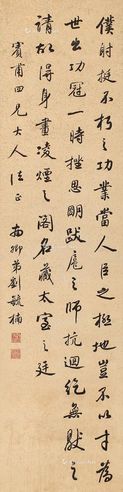 僕射挺不朽之功業當人臣之極地豈不以才為
世出功冠一時挫思明跋扈之師抗迴紇無猒之
請故得身畫凌煙之閣名藏太室之廷
賓甫四兄大人法正
弟劉毓楠